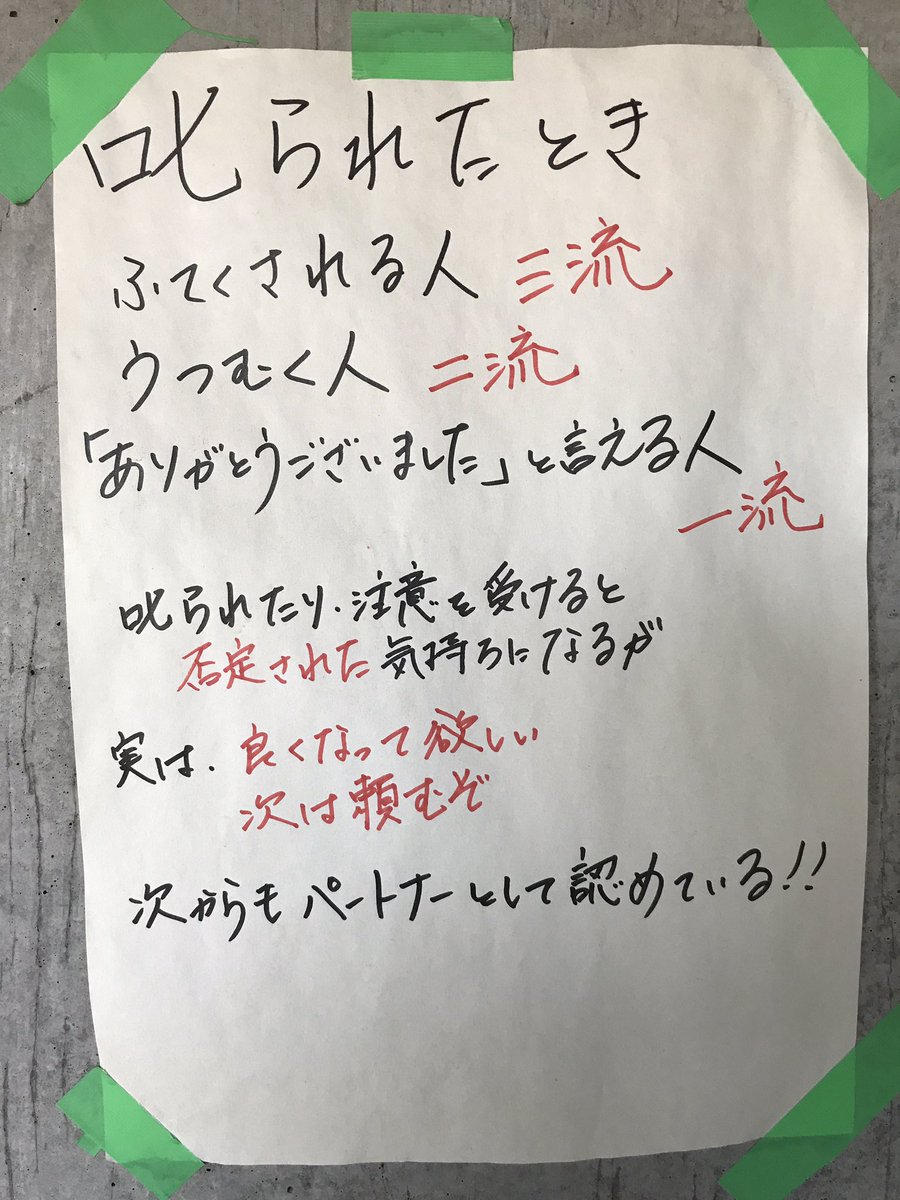 叱られたとき
ふてくされる人 三流
うつむく人 二流
「ありがとうございました」と言える人
一流
叱られたり、注意を受けると
否定された気持ちになるが
実は、良くなって欲しい
次は頼むぞ
次からもパートナーとして認めている!!